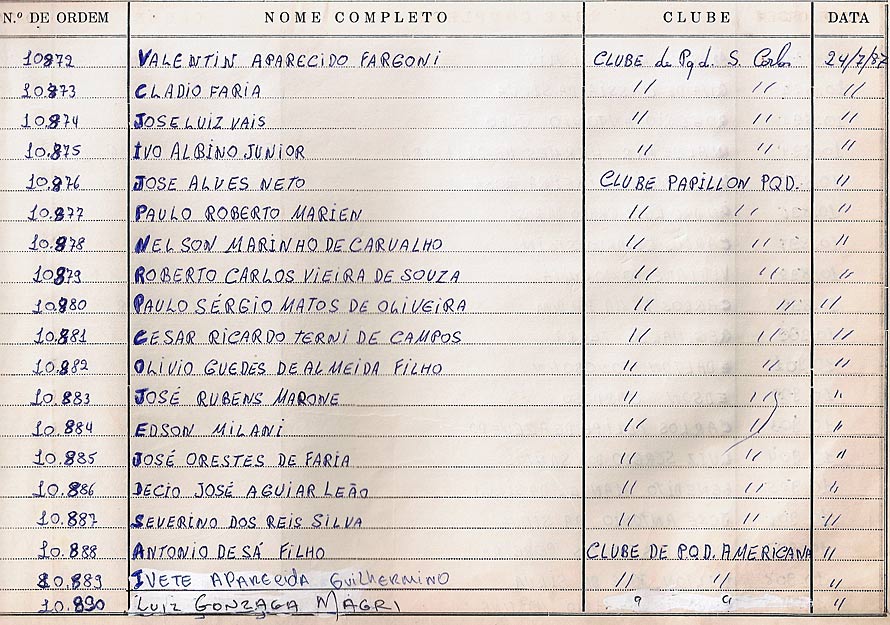 N.º DE ORDEM NOME COMPLETO CLUBE DATA
10872 VALENTIN APARECIDO FARGONI CLUBE de Pqd. S. Carlos 24/7/87
10.873 CLADIO FARIA " " "
10.874 JOSE LUIZ VAIS " " "
10.875 IVO ALBINO JUNIOR " " "
10.876 JOSE ALVES NETO CLUBE PAPILLON PQD. "
10.877 PAULO ROBERTO MARIEN " " "
10.878 NELSON MARINHO DE CARVALHO " " "
10879 ROBERTO CARLOS VIEIRA DE SOUZA " " "
10.880 PAULO SÉRGIO MATOS DE OLIVEIRA " " "
10.881 CESAR RICARDO TERNI DE CAMPOS " " "
10.882 OLIVIO GUEDES DE ALMEIDA FILHO " " "
10.883 JOSÉ RUBENS MARONE " " "
10.884 EDSON MILANI " " "
10.885 JOSÉ ORESTES DE FARIA " " "
10.886 DECIO JOSÉ AGUIAR LEÃO " " "
10.887 SEVERINO DOS REIS SILVA " " "
10.888 ANTONIO DE SÁ FILHO CLUBE DE PQD. AMERICANA "
10.889 IVETE APARECIDA GUILHERMINO " " "
10.890 LUIZ GONZAGA MAGRI " " "